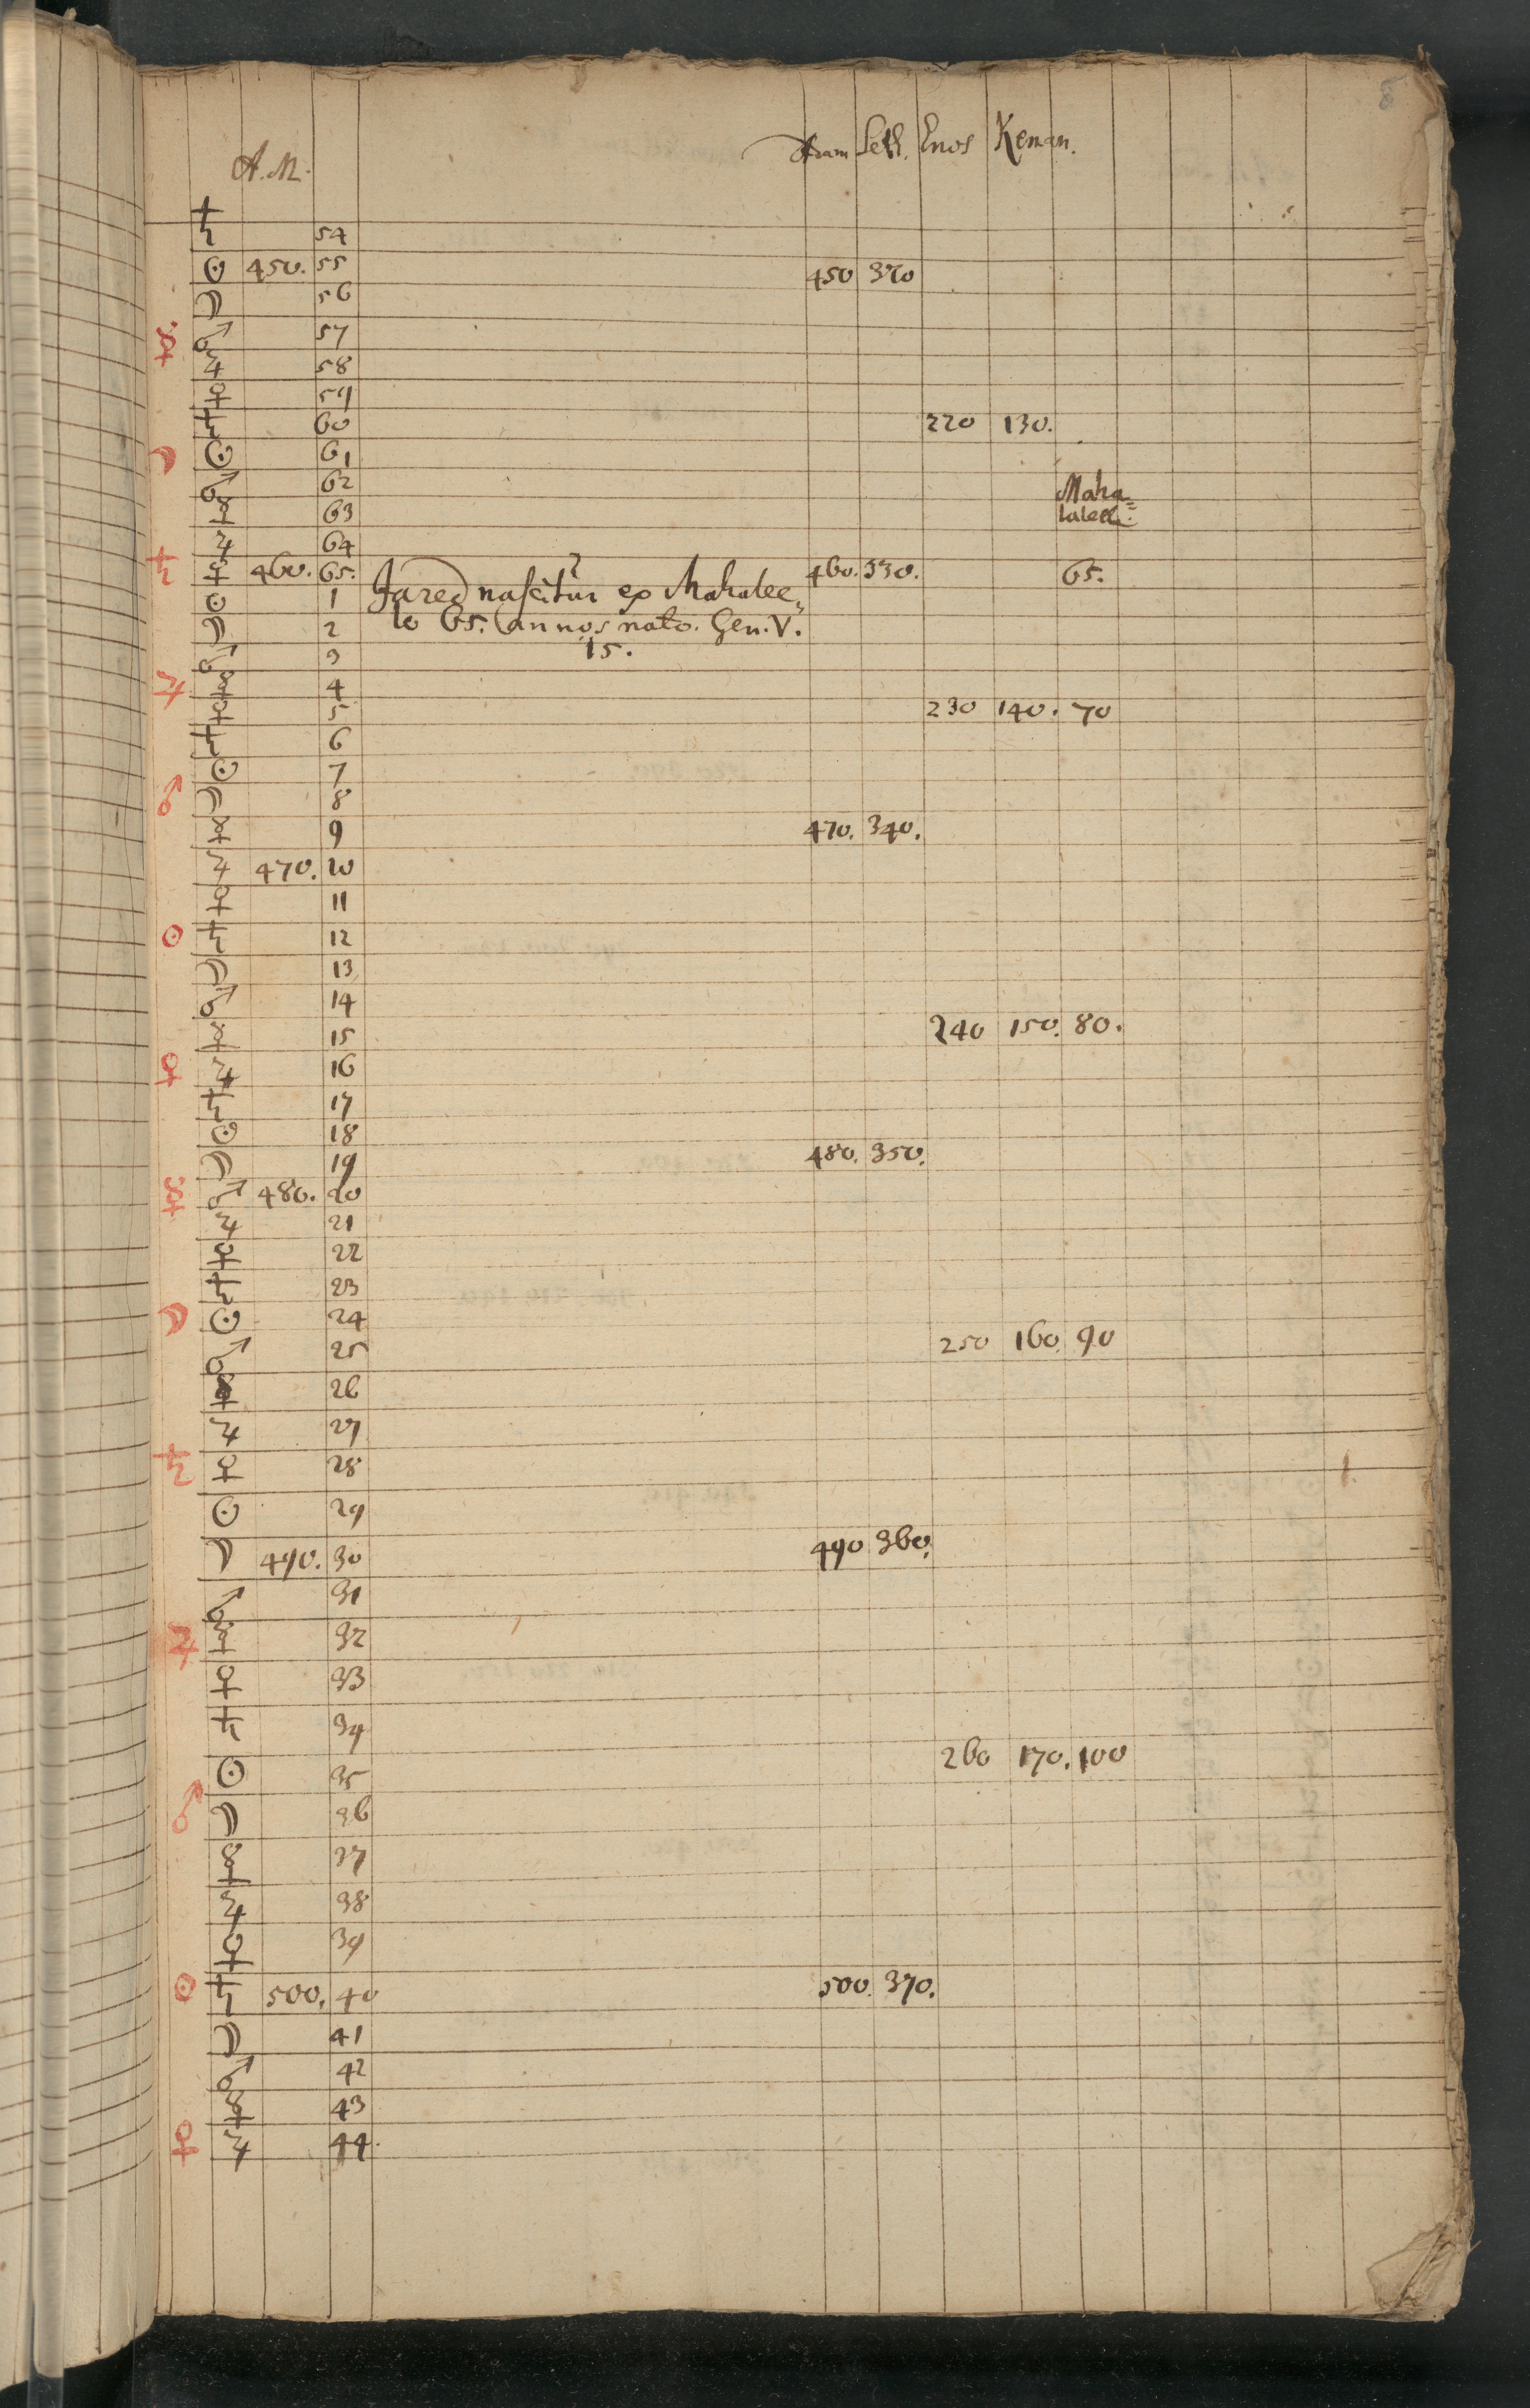 8
A. M. Adam Seth. Enos Kenan.
♄ 54
☉ 450. 55 450 320
☽ 56
☿ ♂ 57
♃ 58
♀ 59
♄ 60 220 130.
☽ ☉ 61
♂ 62 Maha=
☿ 63 laleel:
♃ 64
♄ ♀ 460. 65. 460. 330. 65.
☉ 1 Jared nascitur ex Mahalee=
☽ 2 lo 65. annos nato. Gen. V.
♂ 3 15.
♃ ☿ 4
♀ 5 230 140. 70
♄ 6
☉ 7
♂ ☽ 8
☿ 9 470. 340.
♃ 470. 10
♀ 11
☉ ♄ 12
☽ 13
♂ 14
☿ 15 240 150. 80.
♀ ♃ 16
♄ 17
☉ 18
☽ 19 480. 350.
☿ ♂ 480. 20
♃ 21
♀ 22
♄ 23
☽ ☉ 24
♂ 25 250 160. 90
☿ 26
♃ 27
♄ ♀ 28
☉ 29
☽ 490. 30 490 360.
♂ 31
♃ ☿ 32
♀ 33
♄ 34
☉ 35 260 170. 100
♂ ☽ 36
☿ 37
♃ 38
♀ 39
☉ ♄ 500. 40 500. 370.
☽ 41
♂ 42
☿ 43
♀ ♃ 44.